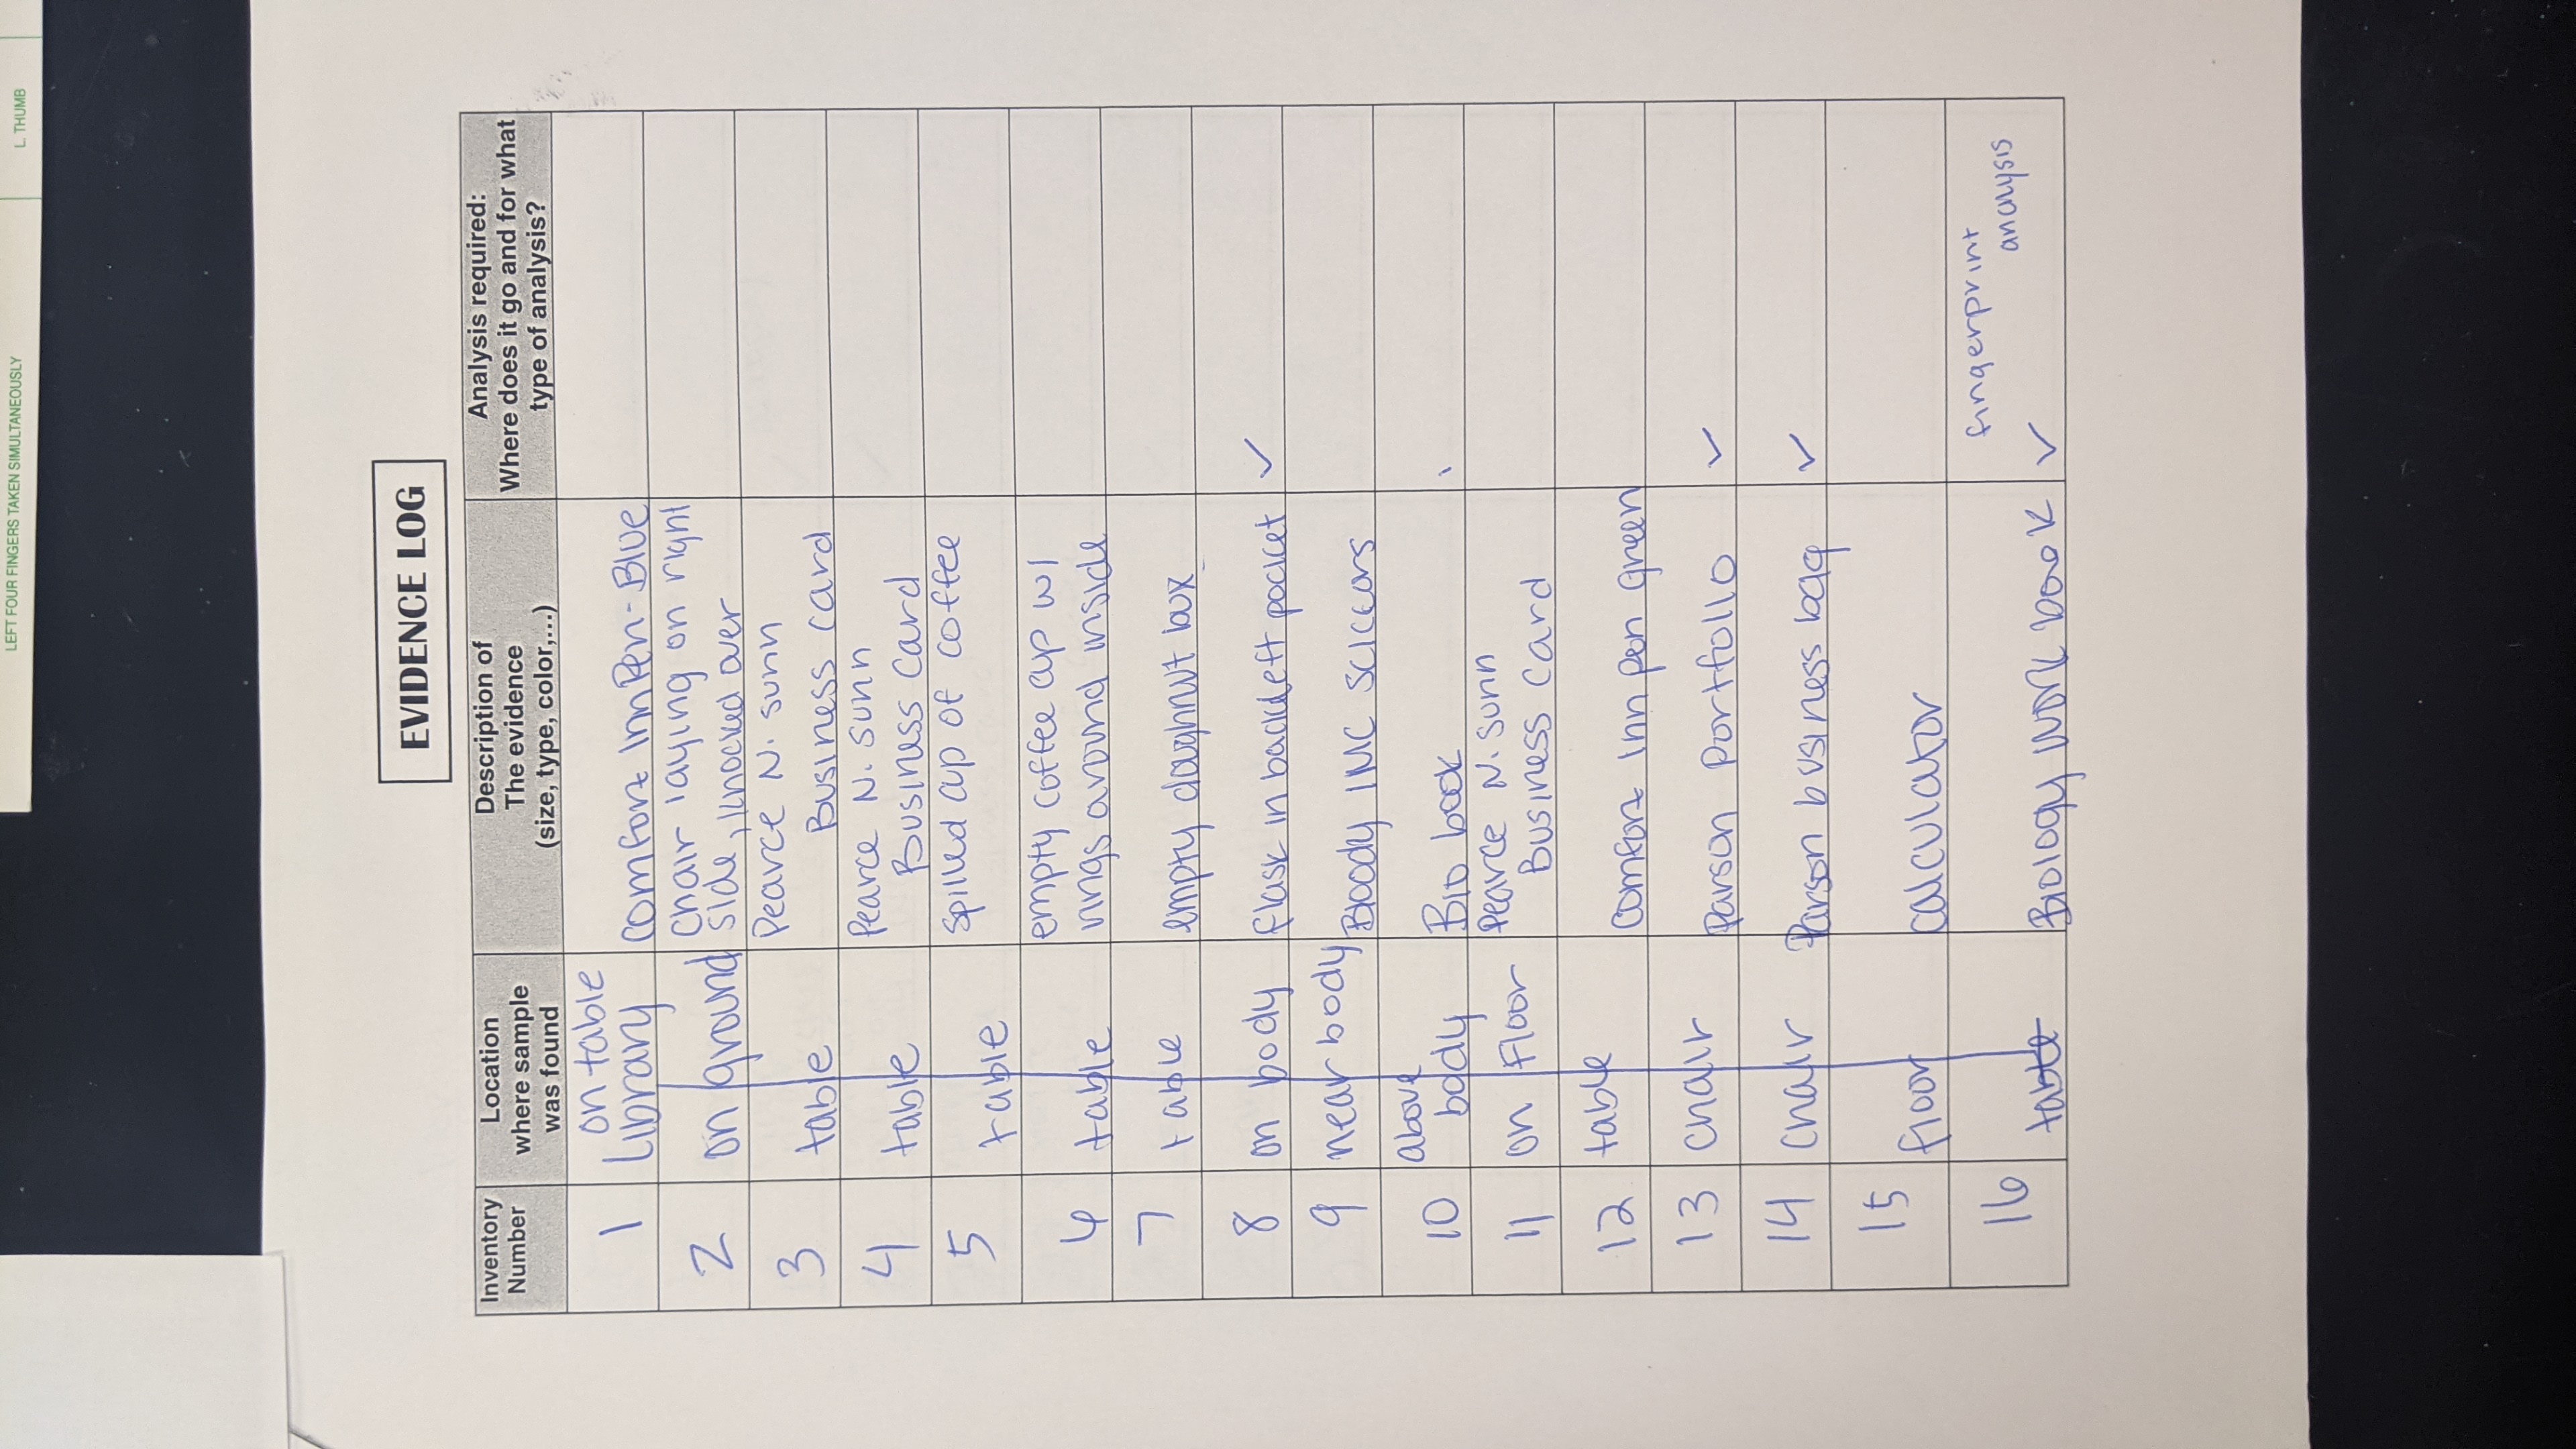 LEFT FOUR FINGERS TAKEN SIMULTANEOUSLY
L. THUMB
EVIDENCE LOG
Inventory Number
Location where sample was found
Description of The evidence (size, type, color,...)
Analysis required: Where does it go and for what type of analysis?
1
on table
Library
Comfort Inn Pen - Blue
2
on ground
chair laying on right
side, knocked over
3
table
Pearce N. sunn
Business card
4
table
Pearce N. Sunn
Business Card
5
table
spilled cup of coffee
6
table
empty coffee cup w/
rings around inside
7
table
empty doughnut box
8
on body
flask in back left pocket ✓
9
near body
Bloody IMC sciccors
10
above
body
Bio book
11
on Floor
Pearce N. Sunn
Business Card
12
table
Comfort Inn pen green
13
chair
Parson Portfolio ✓
14
chair
Parson business bag ✓
15
floor
calculator
16
table
Biology work book ✓
fingerprint
analysis